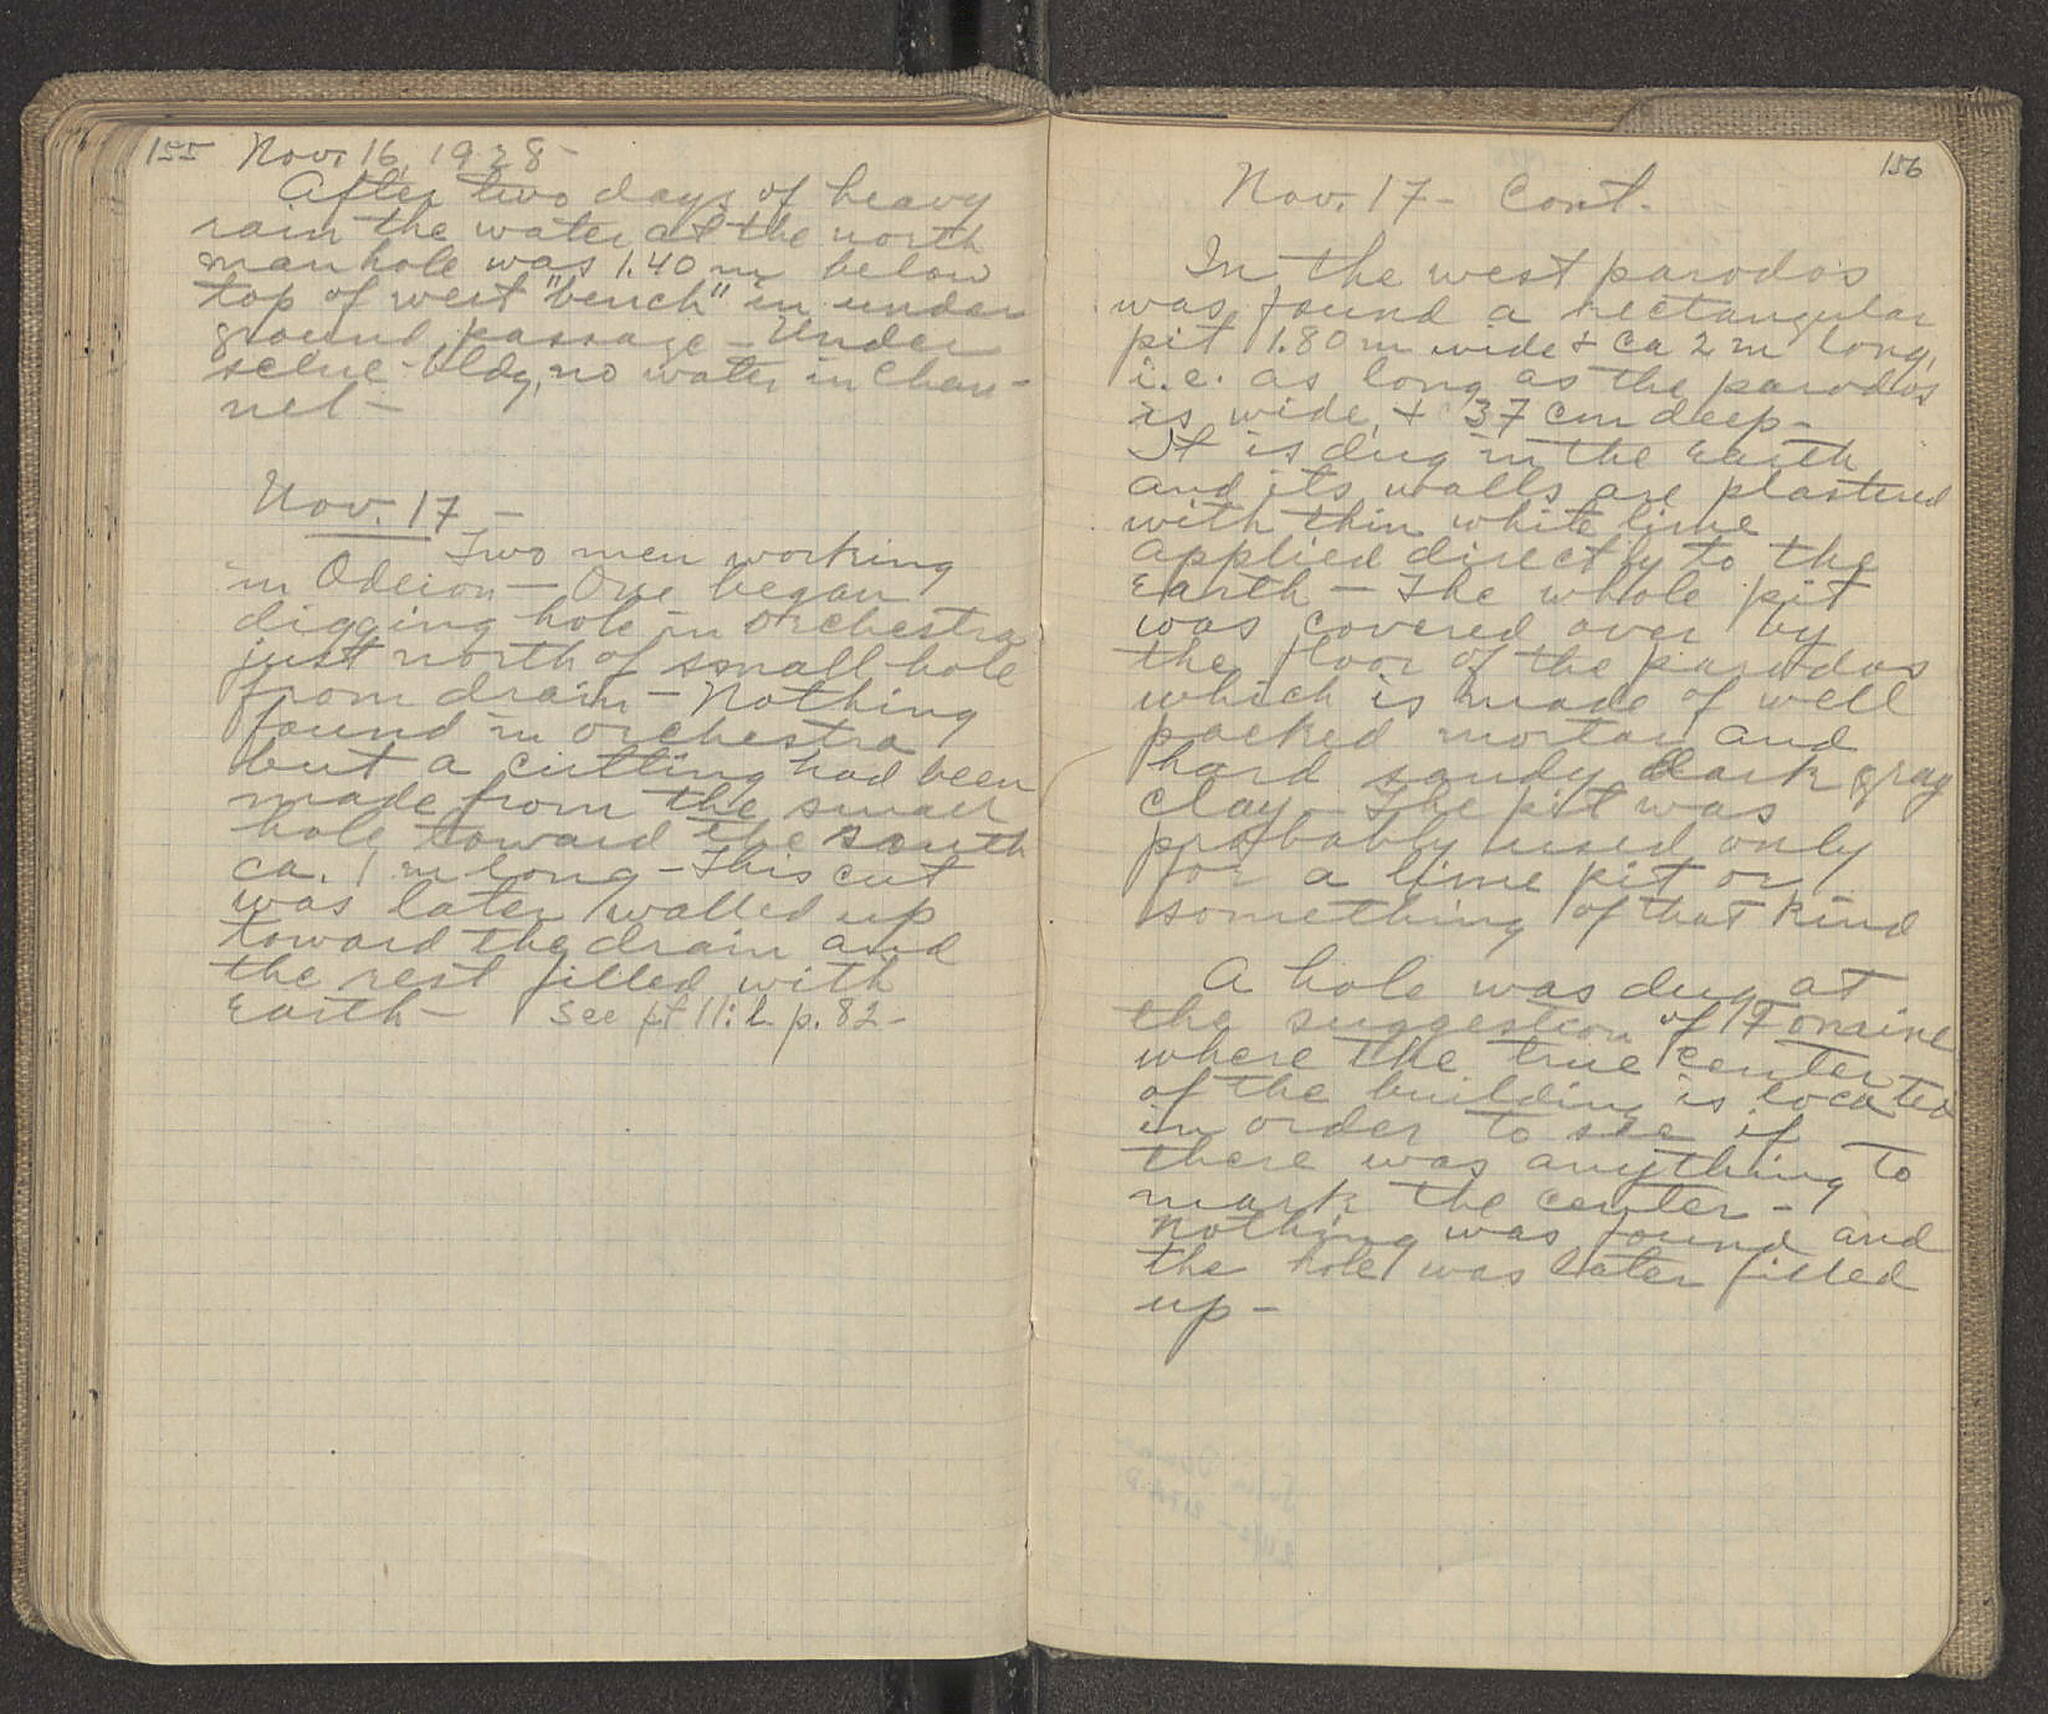 155 Nov. 16, 1928 -
After two days of heavy
rain the water at the north
manhole was 1.40 m below
top of west "bench" in under
ground passage - Under
scene-bldg, no water in chan-
nel -
Nov. 17 -
Two men working
in Odeion - One began
digging hole in orchestra
just north of small hole
from drain - Nothing
found in orchestra
but a cutting had been
made from the small
hole toward the south
ca. 1 m long - This cut
was later walled up
toward the drain and
the rest filled with
Earth - See p. 82 -
156
Nov. 17 - Cont.
In the west parodos
was found a rectangular
pit 1.80 m wide + ca 2 m long,
i.e. as long as the parodos
is wide, + 37 cm deep -
It is dug in the Earth
and its walls are plastered
with thin white lime
applied directly to the
Earth - The whole pit
was covered over by
the floor of the parodos
which is made of well
packed mortar and
hard sandy dark gray
clay - The pit was
probably used only
for a lime pit or
something of that kind
A hole was dug at
the suggestion of
where the true center
of the building is located
in order to see if
there was anything to
mark the center -
Nothing was found and
the hole was later filled
up -